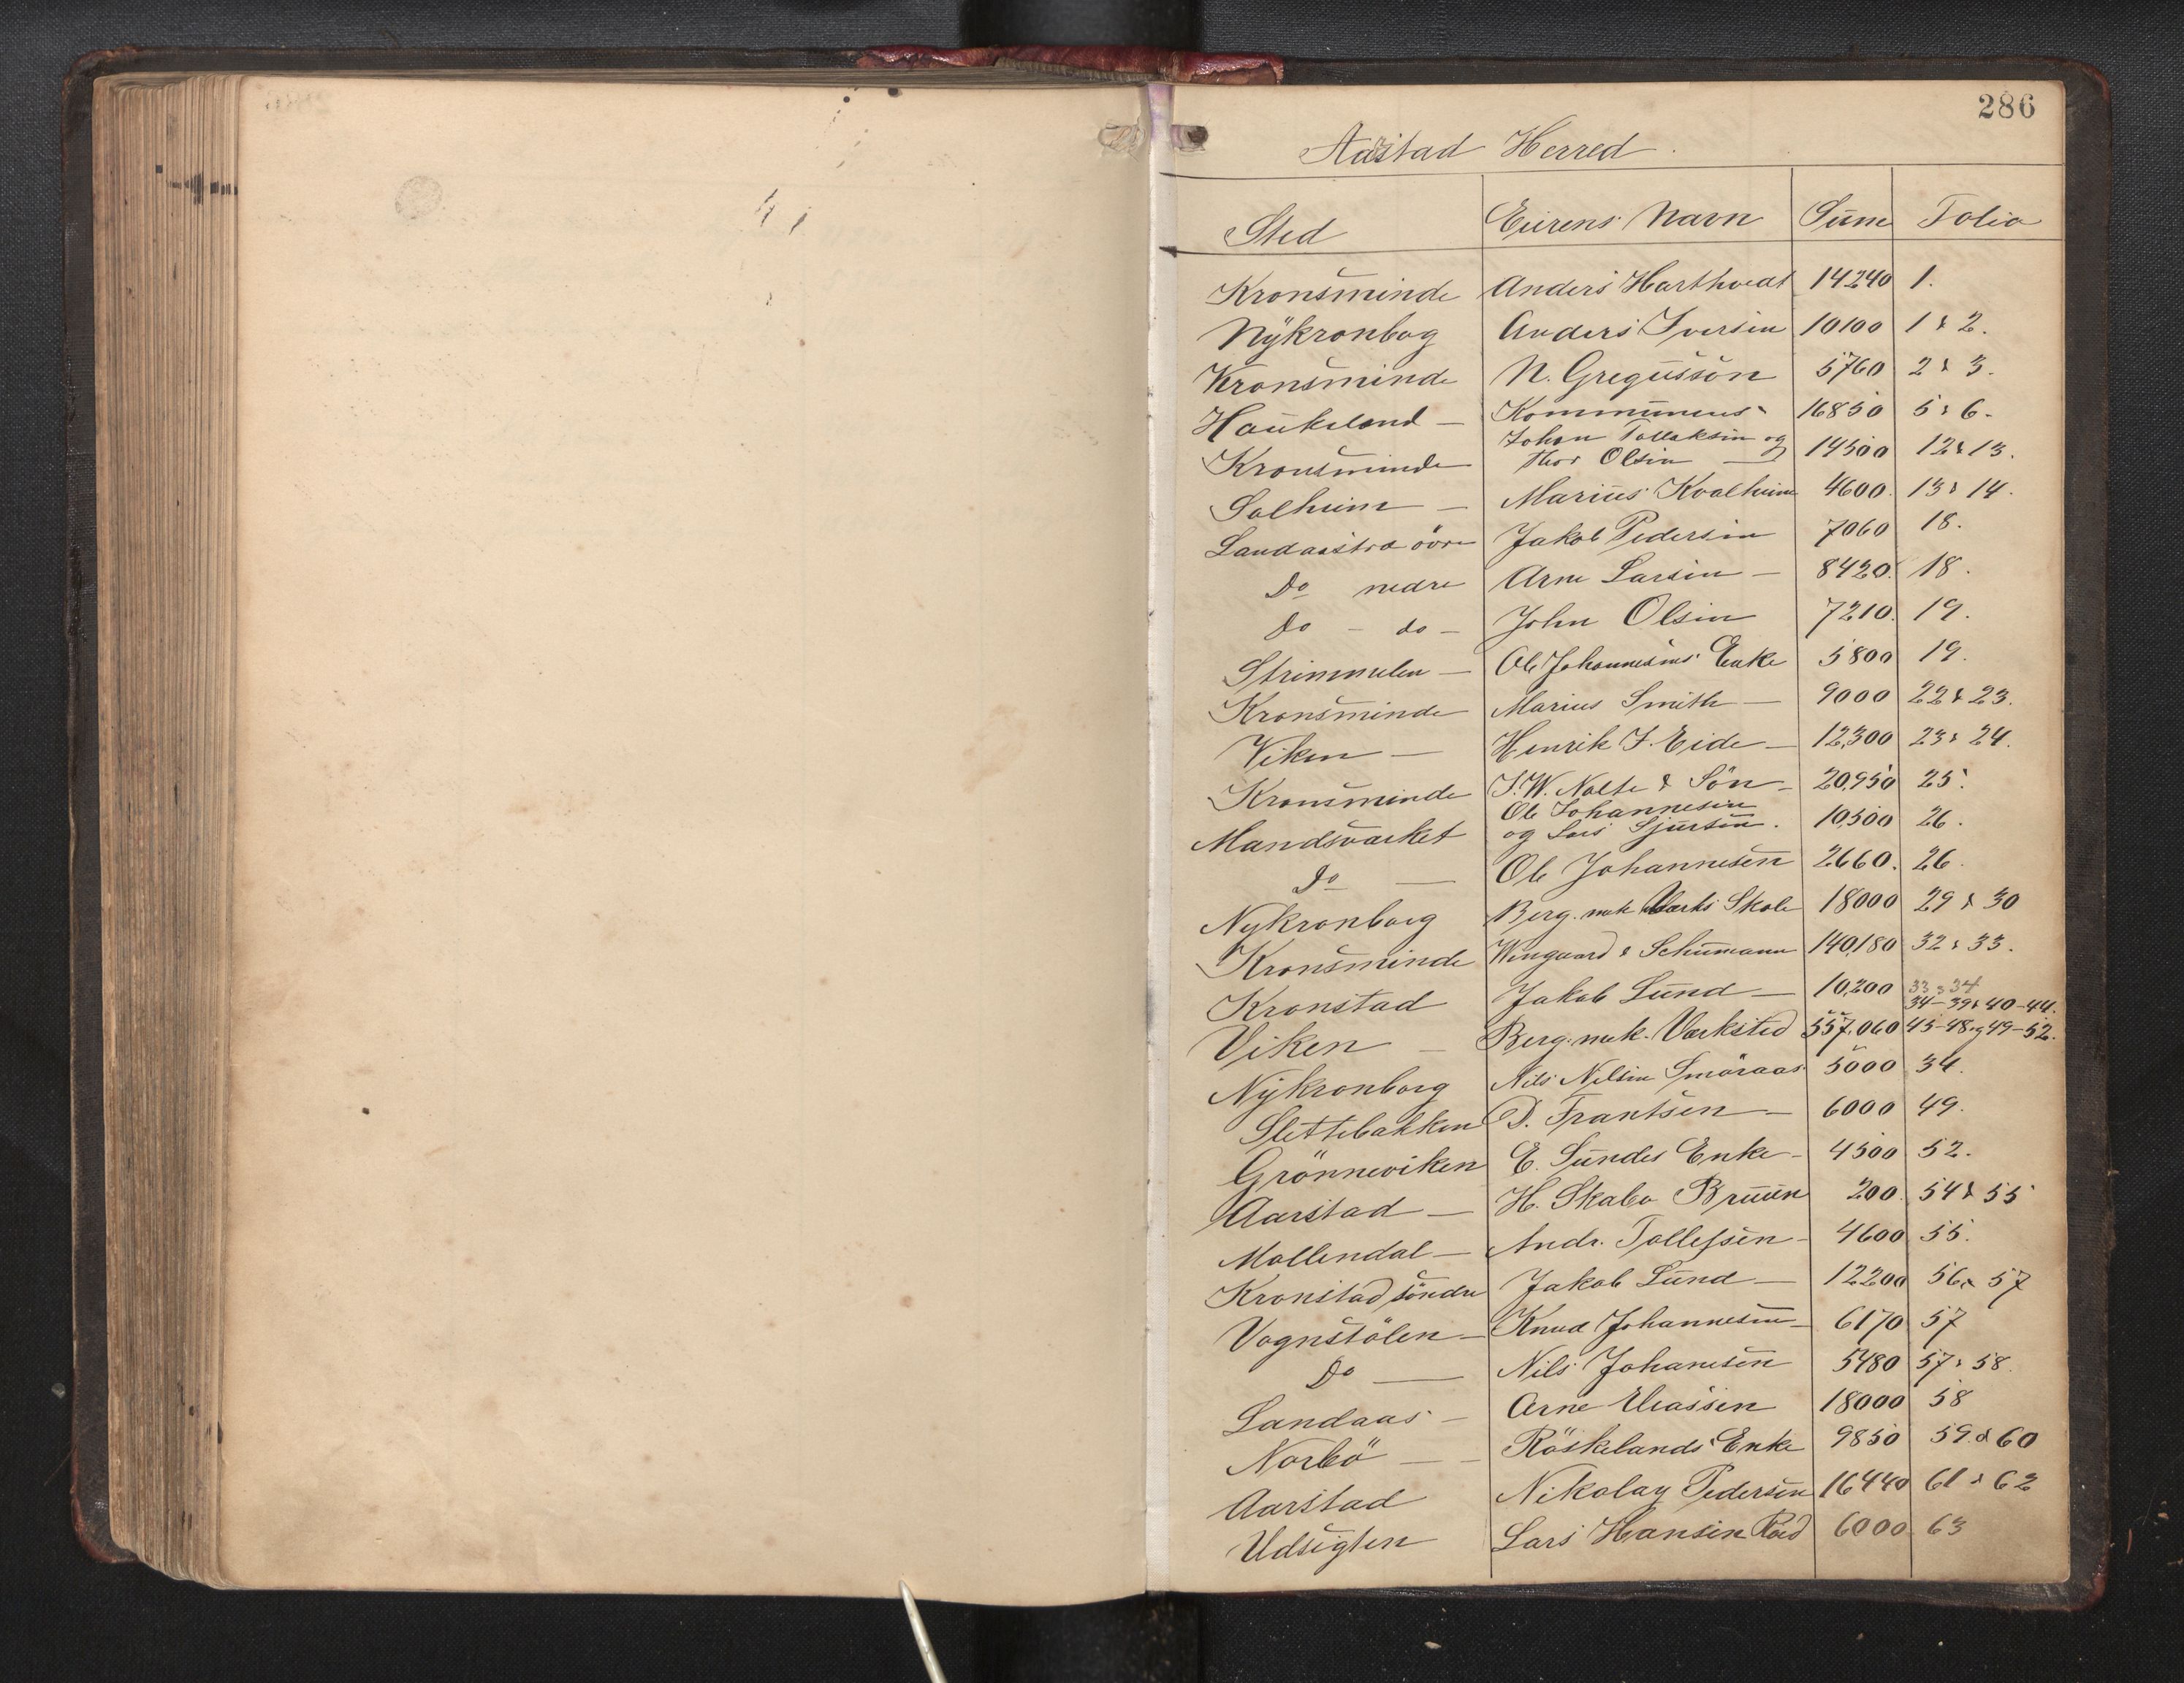 286
Aastad Herred.
Sted Eierens Navn Sum Folio
Kronsminde Anders Harthvedt 14240 1.
Nÿkronbog Anders Iversen 10100 1 & 2.
Kronsminde N. Gregussön 5760 2 & 3.
Haukeland — Kommunens 16850 5 & 6.
Johan Tollaksen og
Kronsminde Thor Olsen — 14500 12 & 13.
Solheim — Marius Kvalheim 4600. 13 & 14.
Landaastræ övre Jakob Pedersen 7060 18.
Do nedre Arne Larsen — 8420. 18.
Do - do - John Olsen 7210. 19.
Strimmelen — Ole Johannesens Enke 5800 19.
Kronsminde Marius Smith — 9000 22 & 23.
Viken — Henrik J. Eide — 12,300 23 & 24.
Kronsminde J.W. Nolte & Sön — 20,950 25.
Ole Johannesen
Mandsværket og Lars Sjursen. 10,500 26.
Do — Ole Johannesen 2660. 26.
Nykronborg Berg. mek Værks Skole 18000 29 & 30
Kronsminde Wingaard & Schumann 140,180 32 & 33.
Kronstad Jakob Lund — 10,200 33 & 34
34-39 & 40-44.
Viken — Berg. mek. Værksted 557,060 45-48 og 49-52.
Nÿkronborg Nils Nilsen Smöraas 5000 34.
Slettebakken D. Frantsen — 6000 49.
Grönneviken E. Sundes Enke — 4500 52.
Aarstad — H. Skabo Bruun 200. 54 & 55
Mollendal — Andr. Tollefsen — 4600 55.
Kronstad söndre Jakob Lund — 12200 56 & 57
Vognstölen — Knud Johannesen — 6170 57
Do — Nils Johanesen 5480 57 & 58.
Landaas — Arne Eliassen 18000 58
Norbö — Röskelands Enke 9850 59 & 60
Aarstad Nikolay Pedersen 16440 61 & 62
Udsigten Lars Hansen 6000 63